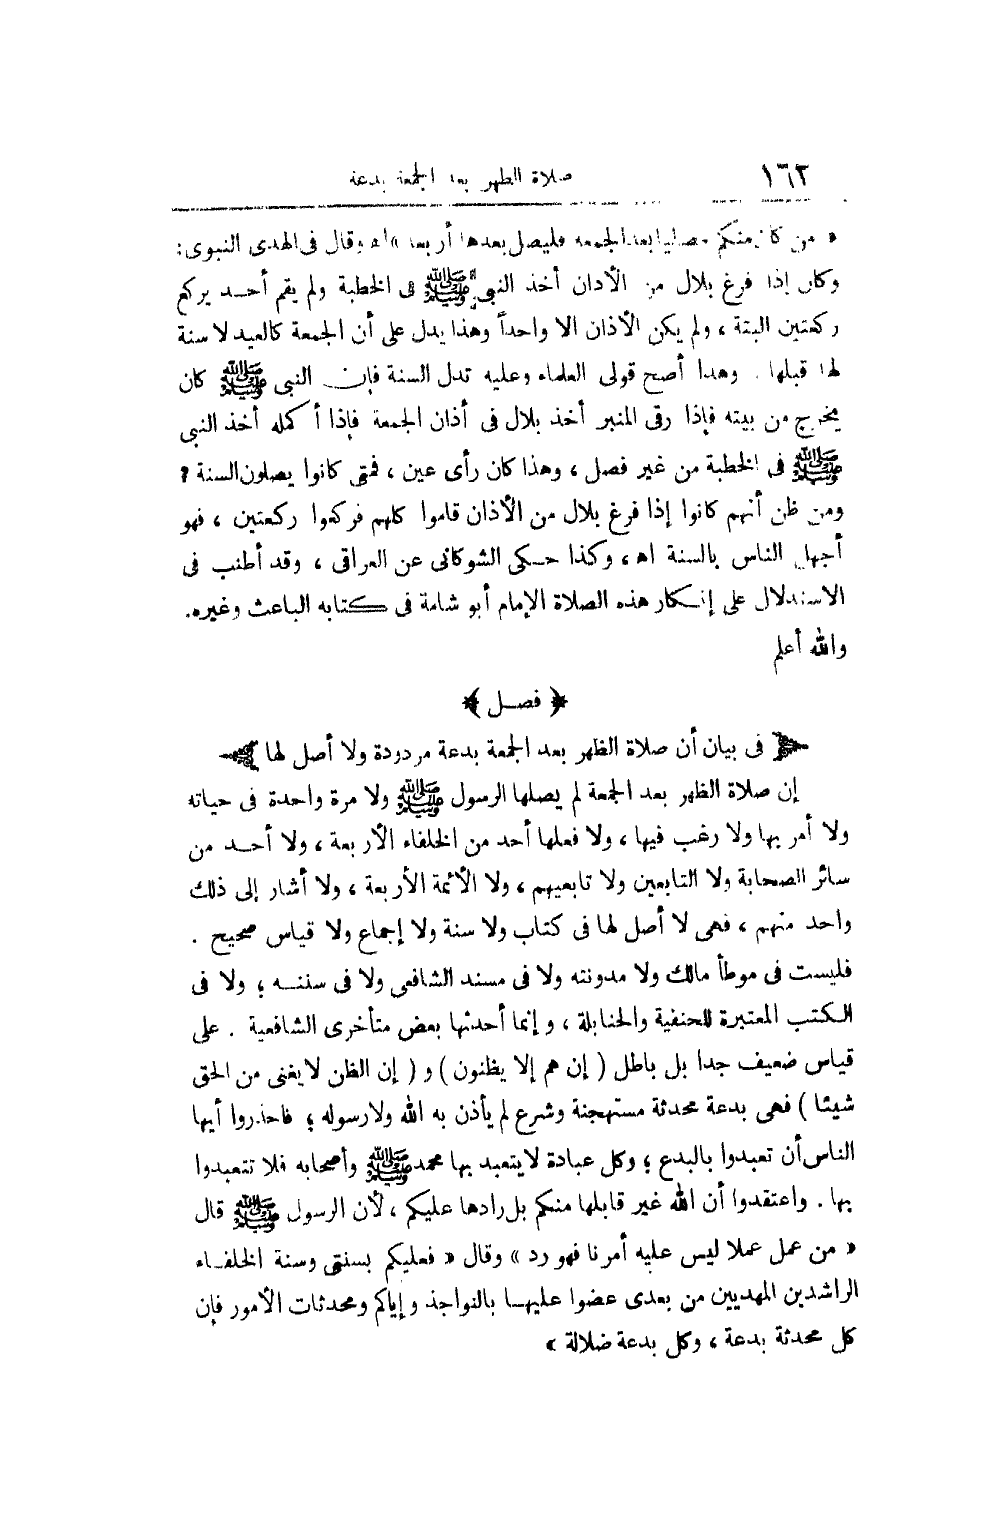 ١٦٢ صلاة الظهر بعد الجمعة بدعة
« من كان منكم مصليا بعد الجمعة فليصل بعدها أربعا » اه وقال فى الهدى النبوى :
وكان إذا فرغ بلال من الأذان أخذ النبى ﷺ فى الخطبة ولم يقم أحد يركع
ركعتين البتة ، ولم يكن الأذان الا واحداً وهذا يدل على أن الجمعة كالعيد لا سنة
لها قبلها . وهذا أصح قولى العلماء وعليه تدل السنة فإن النبى ﷺ كان
يخرج من بيته فإذا رقى المنبر أخذ بلال فى أذان الجمعة فإذا أكمله أخذ النبى
ﷺ فى الخطبة من غير فصل ، وهذا كان رأى عين ، فمتى كانوا يصلون السنة ؟
ومن ظن أنهم كانوا إذا فرغ بلال من الأذان قاموا كلهم فركعوا ركعتين ، فهو
أجهل الناس بالسنة اه ، وكذا حكى الشوكانى عن العراقى ، وقد أطنب فى
الاستدلال على إنكار هذه الصلاة الإمام أبو شامة فى كتابه الباعث وغيره .
والله أعلم
﴿ فصل ﴾
فى بيان أن صلاة الظهر بعد الجمعة بدعة مردودة ولا أصل لها
إن صلاة الظهر بعد الجمعة لم يصلها الرسول ﷺ ولا مرة واحدة فى حياته
ولا أمر بها ولا رغب فيها ، ولا فعلها أحد من الخلفاء الأربعة ، ولا أحد من
سائر الصحابة ولا التابعين ولا تابعيهم ، ولا الأئمة الأربعة ، ولا أشار إلى ذلك
واحد منهم ، فهى لا أصل لها فى كتاب ولا سنة ولا إجماع ولا قياس صحيح .
فليست فى موطأ مالك ولا مدونته ولا فى مسند الشافعى ولا فى سننه ؛ ولا فى
الكتب المعتبرة للحنفية والحنابلة ، وإنما أحدثها بعض متأخرى الشافعية . على
قياس ضعيف جدا بل باطل ( إن هم إلا يظنون ) و ( إن الظن لا يغنى من الحق
شيئا ) فهى بدعة محدثة مستهجنة وشرع لم يأذن به الله ولا رسوله ؛ فاحذروا أيها
الناس أن تعبدوا بالبدع ؛ وكل عبادة لا يتعبد بها محمد ﷺ وأصحابه فلا تتعبدوا
بها . واعتقدوا أن الله غير قابلها منكم بل رادها عليكم ، لأن الرسول ﷺ قال
« من عمل عملا ليس عليه أمرنا فهو رد » وقال « فعليكم بسنتى وسنة الخلفاء
الراشدين المهديين من بعدى عضوا عليها بالنواجذ وإياكم ومحدثات الأمور فإن
كل محدثة بدعة ، وكل بدعة ضلالة »